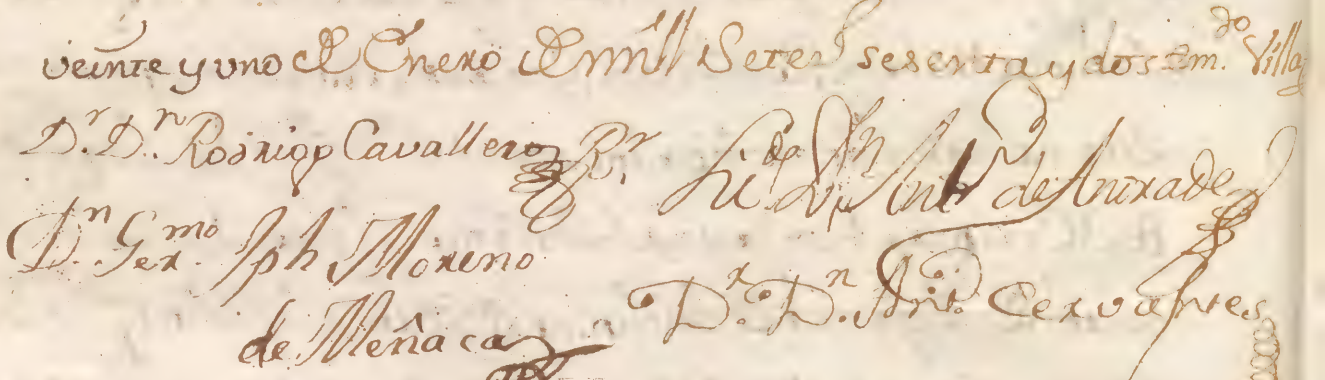 veinte y uno de Enero de mill Setes. sesenta y dos = em.do Villa
Dr. Dn. Rodrigo Cavallero Rr.
Licdo. Dn. Anto. de Andrade
Dn. Germo. Jph Moreno
de Meñaca
Dr. Dn. Anto. Cervantes